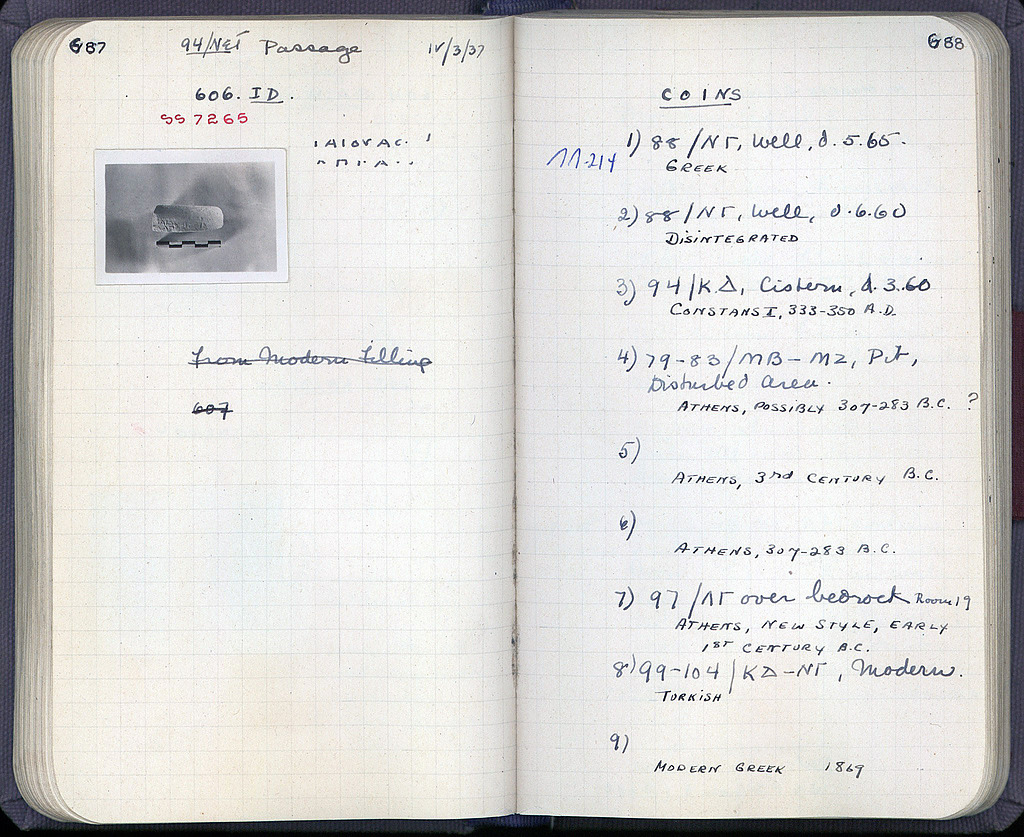 687
94/ΝΕΤ Passage
IV/3/37
606. ID.
SS 7265
from Modern Filling
607
688
COINS
1) 88/ΝΓ, Well, d. 5.65.
ΛΛ-214
GREEK
2) 88/ΝΓ, Well, d. 6.60
DISINTEGRATED
3) 94/ΚΔ, Cistern, d. 3.60
CONSTANS I, 333-350 A.D.
4) 79-83/MB-MZ, Pit,
Disturbed area.
ATHENS, POSSIBLY 307-283 B.C. ?
5)
ATHENS, 3rd CENTURY B.C.
6)
ATHENS, 307-283 B.C.
7) 97/ΛΓ over bedrock Room 19
ATHENS, NEW STYLE, EARLY
1ST CENTURY B.C.
8) 99-104/ΚΔ-ΝΓ, Modern.
TURKISH
9)
MODERN GREEK 1869